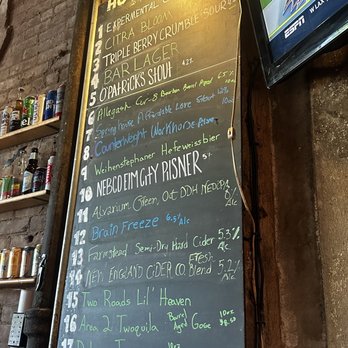 1 EXPERMENTAL
2 CITRA BLOOM
3 TRIPLE BERRY CRUMBLE SOUR
4 BAR LAGER
5 O'PATRICKS STOUT 4.2%
6 Allagash Cur-8 Bourbon Barrel Aged
7 Spring house Affordable Love Stout
8 Counterweight Workhorse Pilsner
9 Weihenstephaner Hefeweissbier
10 NEBCO ELM CITY PILSNER 5%
11 Alvarium Green Out DDH NEDIPA
12 Brain Freeze 6.5% Alc
13 Farmstead Semi-Dry Hard Cider 5.3% Alc.
14 NEW ENGLAND CIDER CO. Fresh Blend 5.2% Alc
15 Two Roads Lil' Heaven
16 Area 2 Twoquila Barrel Aged Gose 10oz
17
ESPN